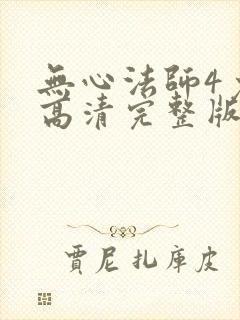 無心法師4
高清完整版
賈尼扎庫皮